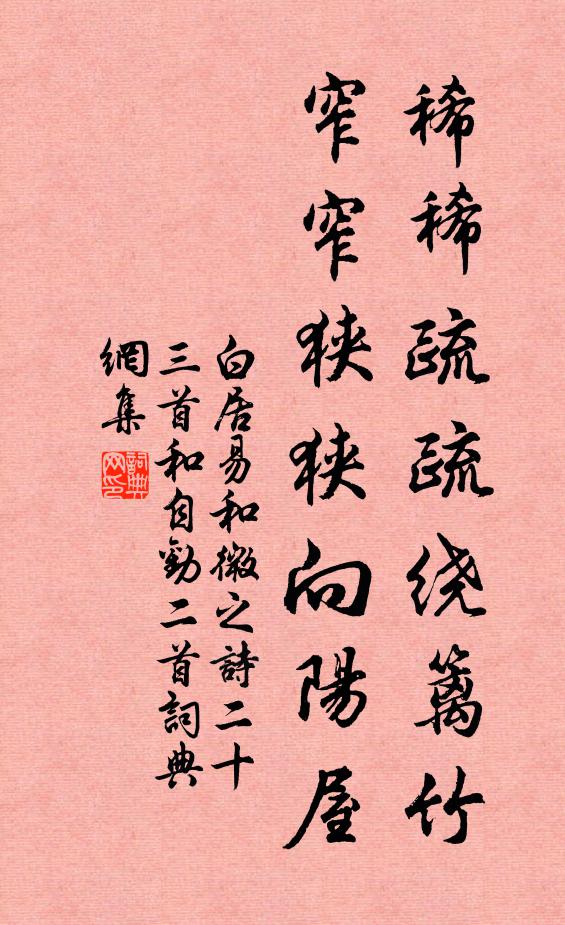 稀稀疏疏绕篱竹
窄窄狭狭向陽屋
白居易和微之詩二十
三首和自勸二首詞典
網集
詞典
网印